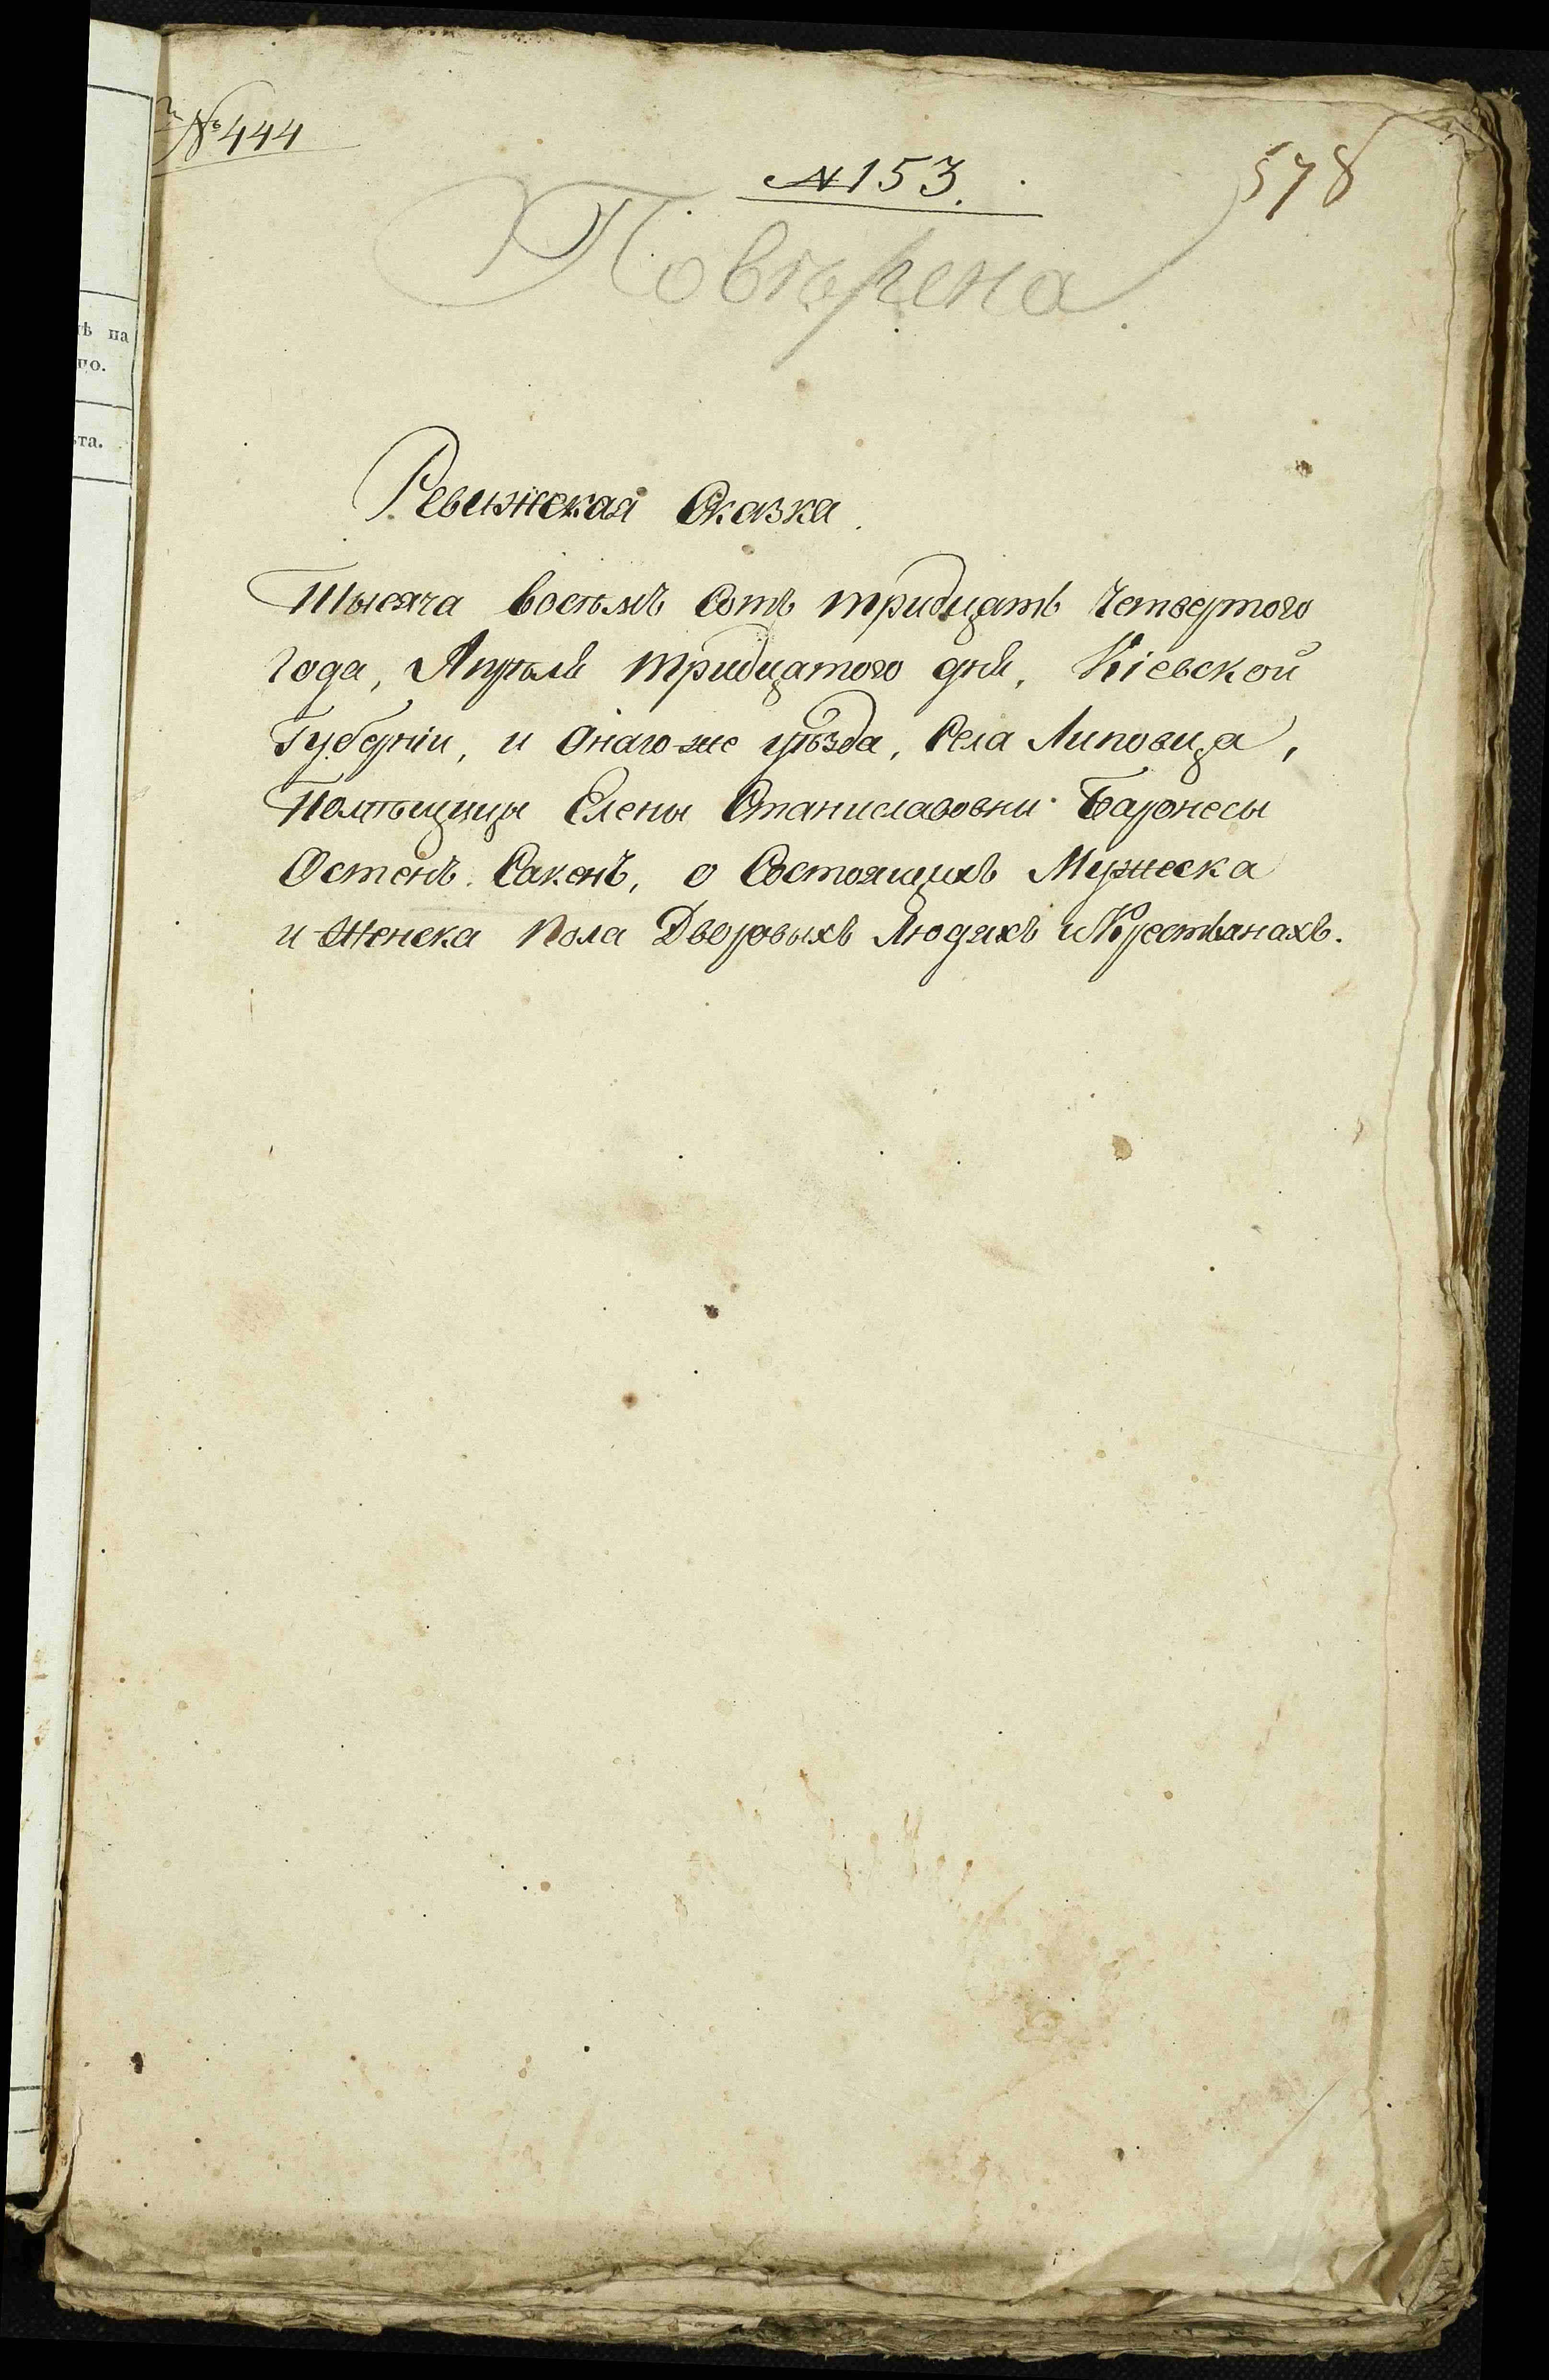 № 444
№ 153.
578
Повѣрена
Ревижская Сказка.
Тысяча восѣмъ Сотъ тридцать Четвертого
года, Апрѣля тридцатого дня, Кіевской
Губерніи, и Онаго-же уѣзда, Села Липовица,
Помѣщицы Елены Станиславовни Баронесы
Остенъ. Сакенъ, о Состоящихъ Мужеска
и Женска пола Дворовыхъ Людяхъ и Крестьянахъ.
ѣ на
по.
та.